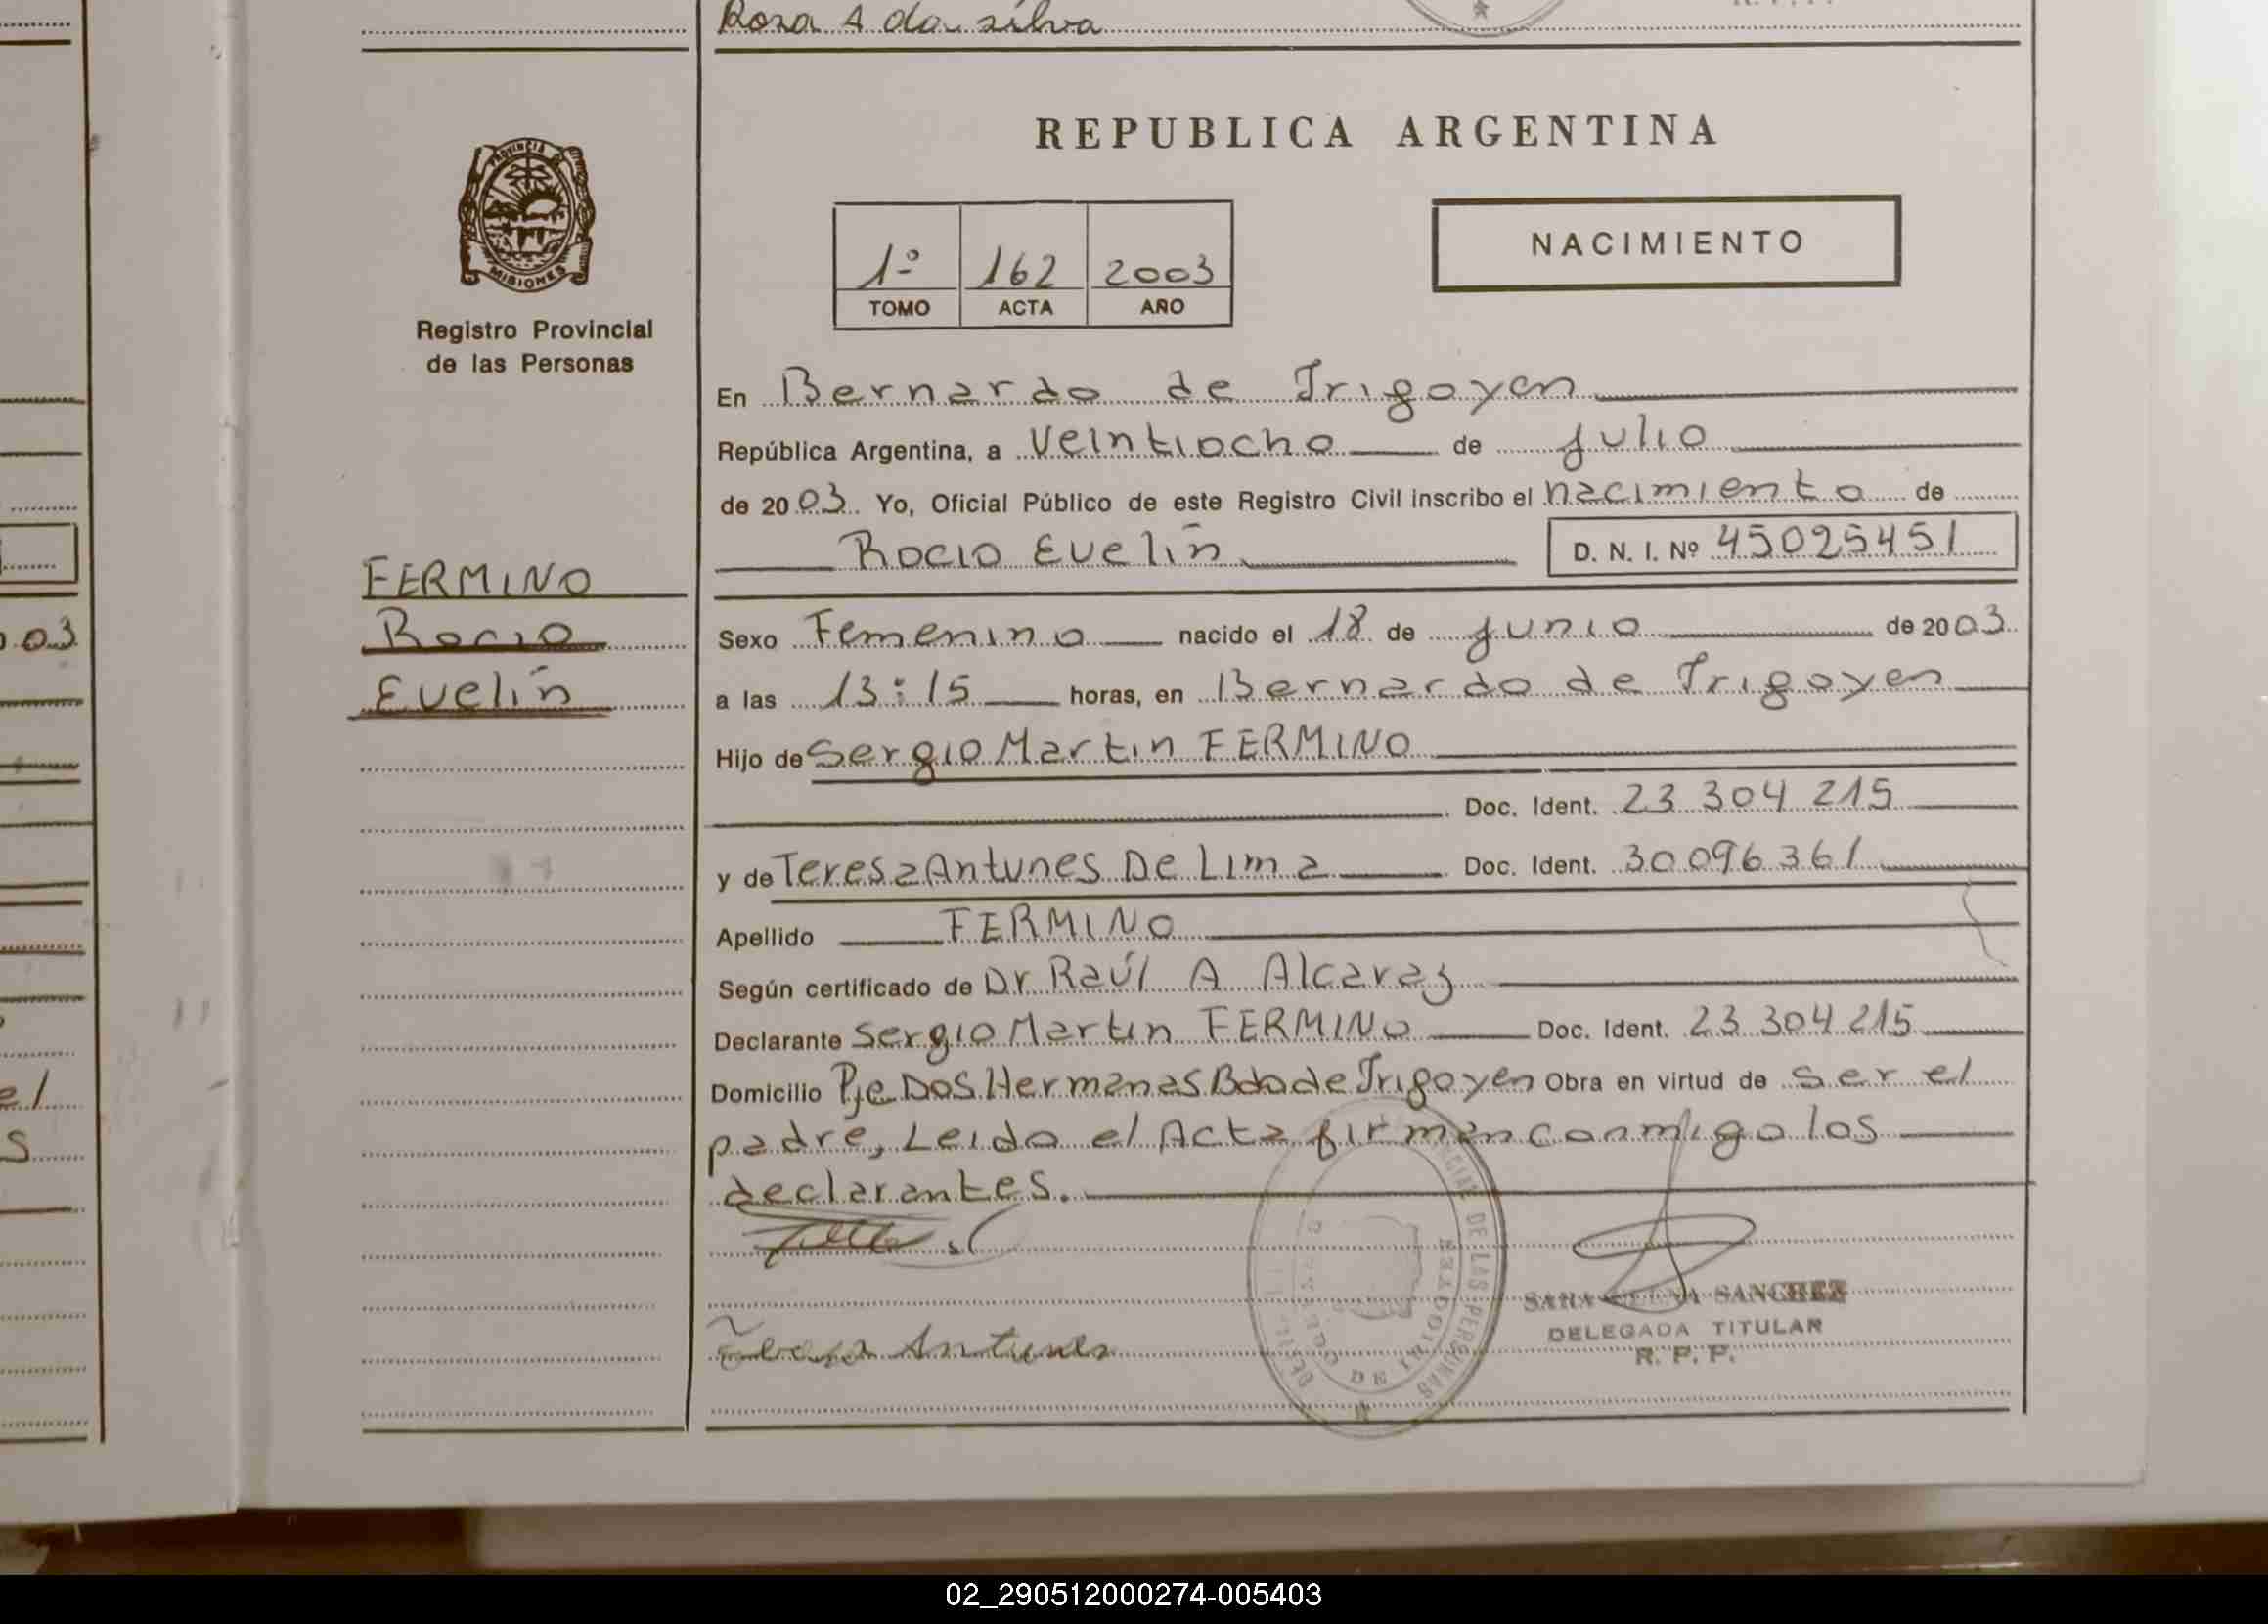 Rosa A da silva
REPUBLICA ARGENTINA
PROVINCIA DE
MISIONES
Registro Provincial
de las Personas
1º 162 2003
TOMO ACTA AÑO
NACIMIENTO
En Bernardo de Irigoyen
República Argentina, a Veintiocho de julio
de 2003. Yo, Oficial Público de este Registro Civil inscribo el nacimiento de
Rocio Evelin D. N. I. Nº 45025451
FERMINO
Rocio
Evelin
03
Sexo Femenino nacido el 18 de junio de 2003.
a las 13:15 horas, en Bernardo de Irigoyen
Hijo de Sergio Martin FERMINO
Doc. Ident. 23 304 215
y de Teresa Antunes De Lima Doc. Ident. 30096361
Apellido FERMINO
Según certificado de Dr Raúl A Alcaraz
Declarante Sergio Martin FERMINO Doc. Ident. 23 304 215
Domicilio Pje Dos Hermanas Bdo de Irigoyen Obra en virtud de ser el
padre, Leido el Acta firman conmigo los
declarantes.
el
s
Teresa Antunes
DE LAS PERSONAS
DE IRIGOYEN
SARA ELENA SANCHEZ
DELEGADA TITULAR
R. P. P.
02_290512000274-005403